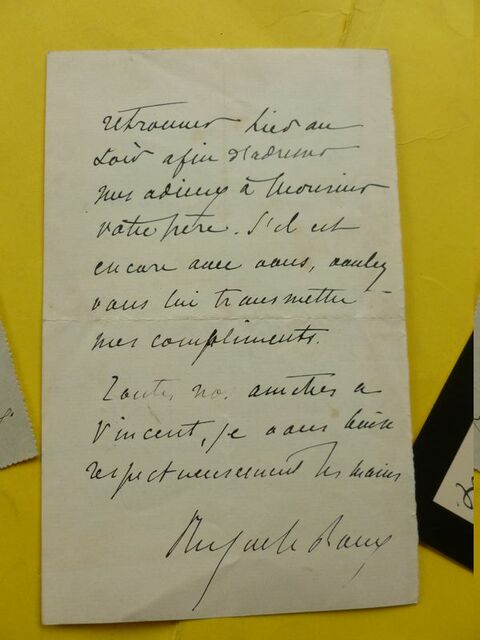 retrouver hier au
soir afin d'adresser
mes adieux à Monsieur
votre père. S'il est
encore avec vous, voulez
vous lui transmettre
mes compliments.
Toutes nos amitiés a
Vincent, je vous baise
respectueusement les mains
Hugues le Roux